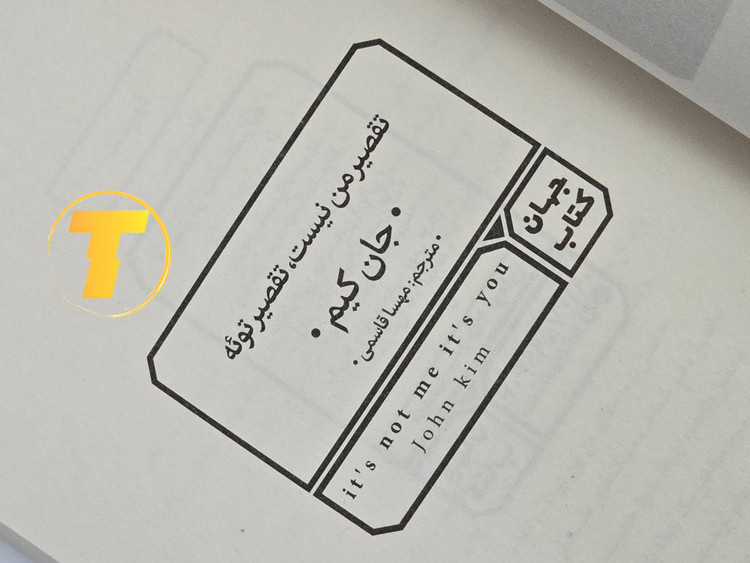 تقصیر من نیست، تقصیر توئه
• جان کیم •
• مترجم: مهسا قاسمی •
جهان
کتاب
it's not me it's you
John kim
T